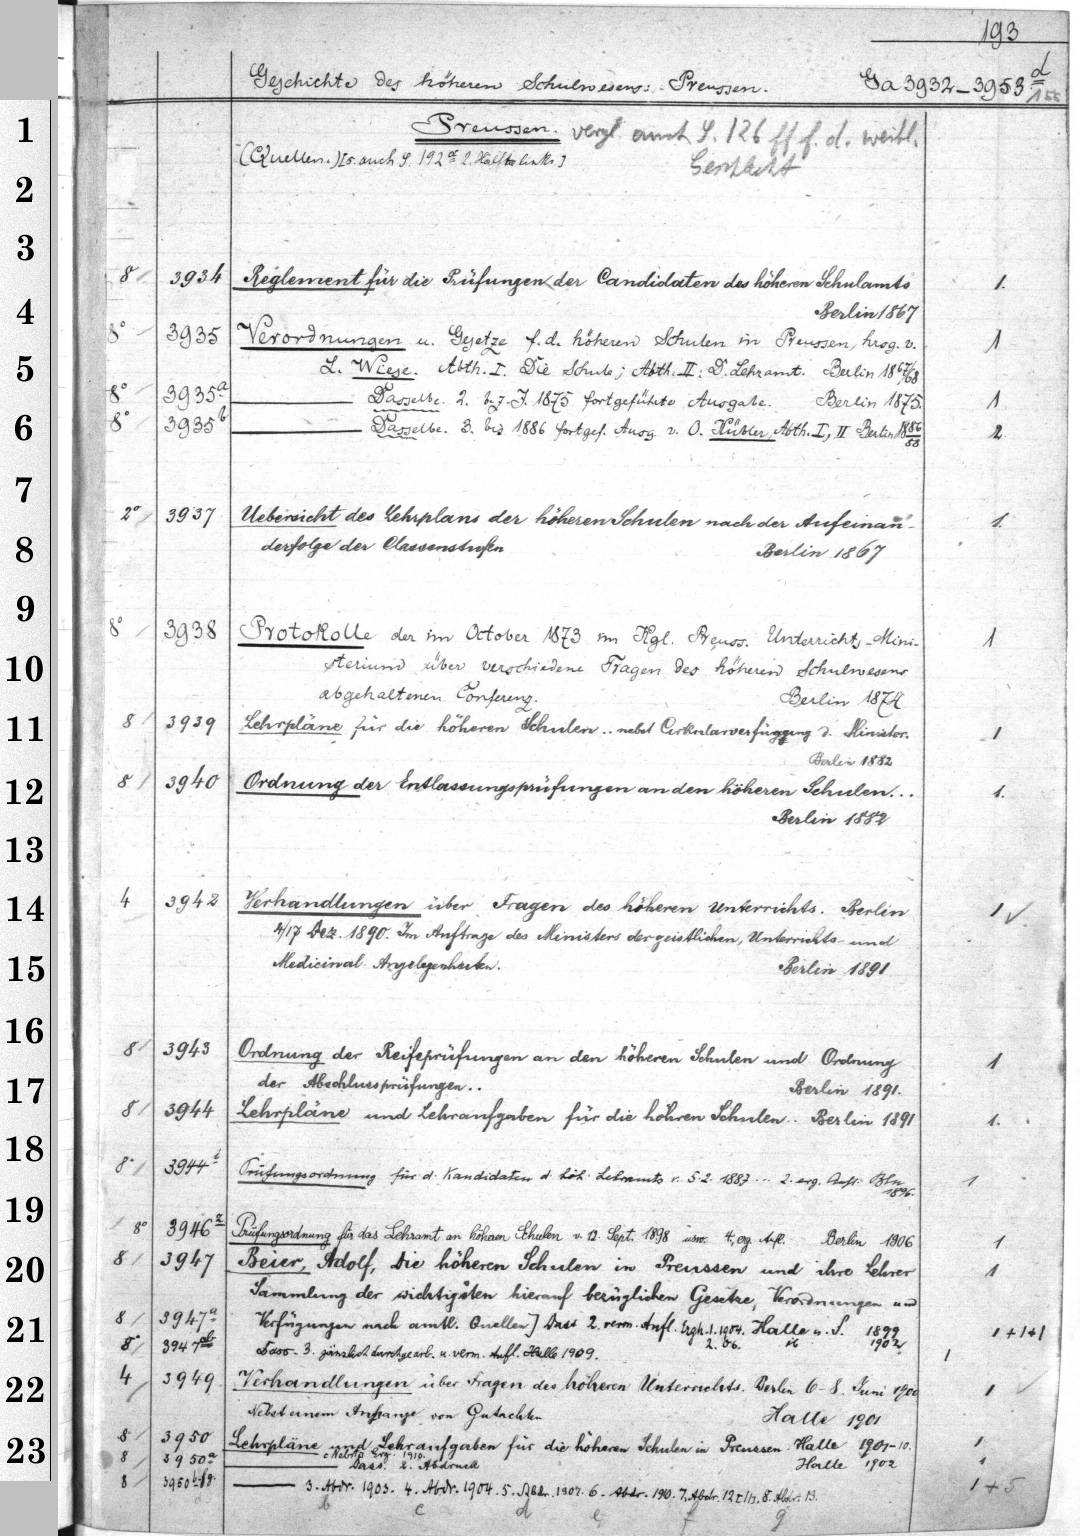 193
Geschichte des höheren Schulwesens: Preussen. Ga 3932-3953 d
Preussen. vergl. auch S. 126 ff f. d. weibl.
(Quellen.) [s. auch S. 192 d 2. Hälfte links] Geschlecht
1
2
3
8 3934 Reglement für die Prüfungen der Candidaten des höheren Schulamts 1.
4
Berlin 1867
8° 3935 Verordnungen u. Gesetze f. d. höheren Schulen in Preussen, hrsg. v. 1
5
L. Wiese. Abth. I. Die Schule; Abth. II: D. Lehramt. Berlin 1867/68
8° 3935a Dasselbe. 2. b. z. J. 1875 fortgeführte Ausgabe. Berlin 1875. 1
6
8° 3935b Dasselbe. 3. bis 1886 fortgef. Ausg. v. O. Kübler, Abth. I, II Berlin 1886/88 2
7
2° 3937 Uebersicht des Lehrplans der höheren Schulen nach der Aufeinan- 1.
8
derfolge der Classenstufen Berlin 1867
9
8° 3938 Protokolle der im October 1873 im Kgl. Preuss. Unterrichts-Mini- 1
10
sterium über verschiedene Fragen des höheren Schulwesens
abgehaltenen Conferenz. Berlin 1874
11
8 3939 Lehrpläne für die höheren Schulen .. nebst Cirkularverfügung d. Minister. 1
Berlin 1882
12
8 3940 Ordnung der Entlassungsprüfungen an den höheren Schulen... 1.
Berlin 1882
13
14
4 3942 Verhandlungen über Fragen des höheren Unterrichts. Berlin 1
4/17 Dez. 1890. Im Auftrage des Ministers der geistlichen, Unterrichts- und
15
Medicinal-Angelegenheiten. Berlin 1891
16
8 3943 Ordnung der Reifeprüfungen an den höheren Schulen und Ordnung 1
17
der Abschlussprüfungen.. Berlin 1891.
8 3944 Lehrpläne und Lehraufgaben für die höhren Schulen.. Berlin 1891 1.
18
8° 3944 Prüfungsordnung für d. Kandidaten d. höh. Lehramts v. 5.2.1887 ... 2. erg. Aufl. Bln 1896. 1
19
8° 3946z Prüfungsordnung für das Lehramt an höheren Schulen v. 12. Sept. 1898 usw. 4. erg. Afl. Berlin 1906 1
20
8 3947 Beier, Adolf, Die höheren Schulen in Preussen und ihre Lehrer 1
Sammlung der wichtigsten hierauf bezüglichen Gesetze, Verordnungen und
21
8 3947a Verfügungen nach amtl. Quellen] Dass 2. verm. Aufl. Ergh. 1. 1904. Halle a. S. 1899 1+1+1
2. 06. ib 1902
8° 3947ab Dass. 3. gänzlich durchgearb. u. verm. Aufl. Halle 1909. 1
22
4 3949 Verhandlungen über Fragen des höheren Unterrichts. Berlin 6-8. Juni 1900 1
Nebst einem Anhange von Gutachten Halle 1901
23
8 3950 Lehrpläne und Lehraufgaben für die höheren Schulen in Preussen. Halle 1901-10. 1
8 3950a Dass. 2. Abdruck Halle 1902 1
8 3950b-g 3. Abdr. 1903. 4. Abdr. 1904. 5. 1907. 6. Abdr. 190. 7. Abdr. 12 8. Abdr. 13. 1+5
b c d e f g